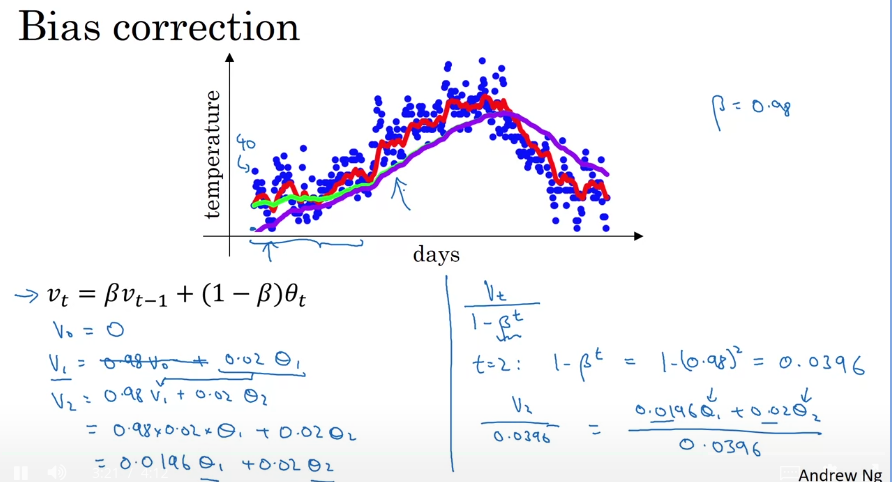 Bias correction
β = 0.98
temperature
40
days
→ v_t = βv_{t−1} + (1 − β)θ_t
V_0 = 0
V_1 = 0.98 V_0 + 0.02 θ_1
V_2 = 0.98 V_1 + 0.02 θ_2
= 0.98 × 0.02 × θ_1 + 0.02 θ_2
= 0.0196 θ_1 + 0.02 θ_2
V_t / (1 − β^t)
t=2: 1 − β^t = 1 − (0.98)^2 = 0.0396
V_2 / 0.0396 = (0.0196 θ_1 + 0.02 θ_2) / 0.0396
Andrew Ng